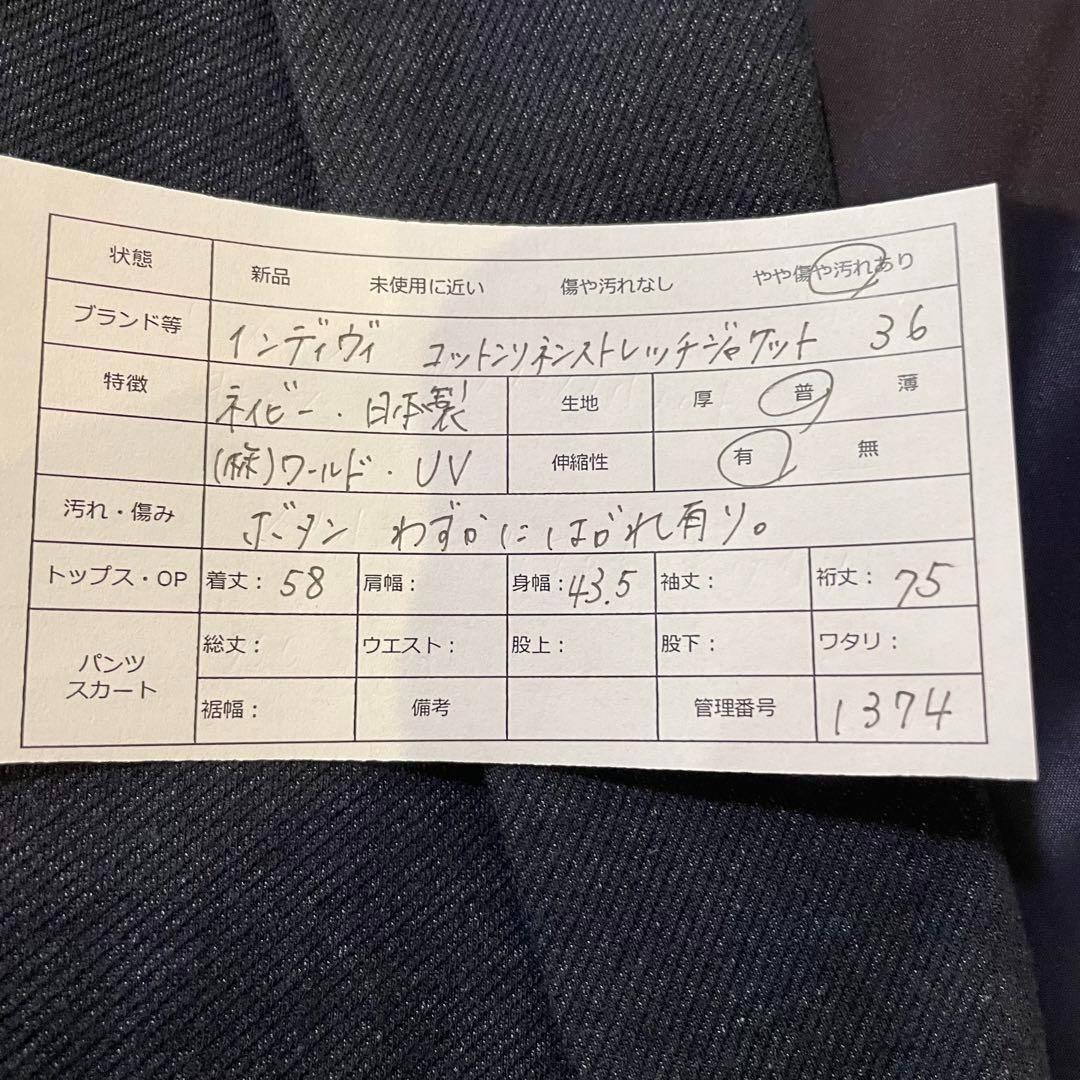 状態 新品 未使用に近い 傷や汚れなし やや傷や汚れあり
ブランド等 インディヴィ コットンリネンストレッチジャケット 36
特徴 ネイビー・日本製 生地 厚 普 薄
(株)ワールド・UV 伸縮性 有 無
汚れ・傷み ボタン わずかにはがれ有り。
トップス・OP 着丈: 58 肩幅: 身幅: 43.5 袖丈: 裄丈: 75
パンツ スカート 総丈: ウエスト: 股上: 股下: ワタリ:
裾幅: 備考 管理番号 1374